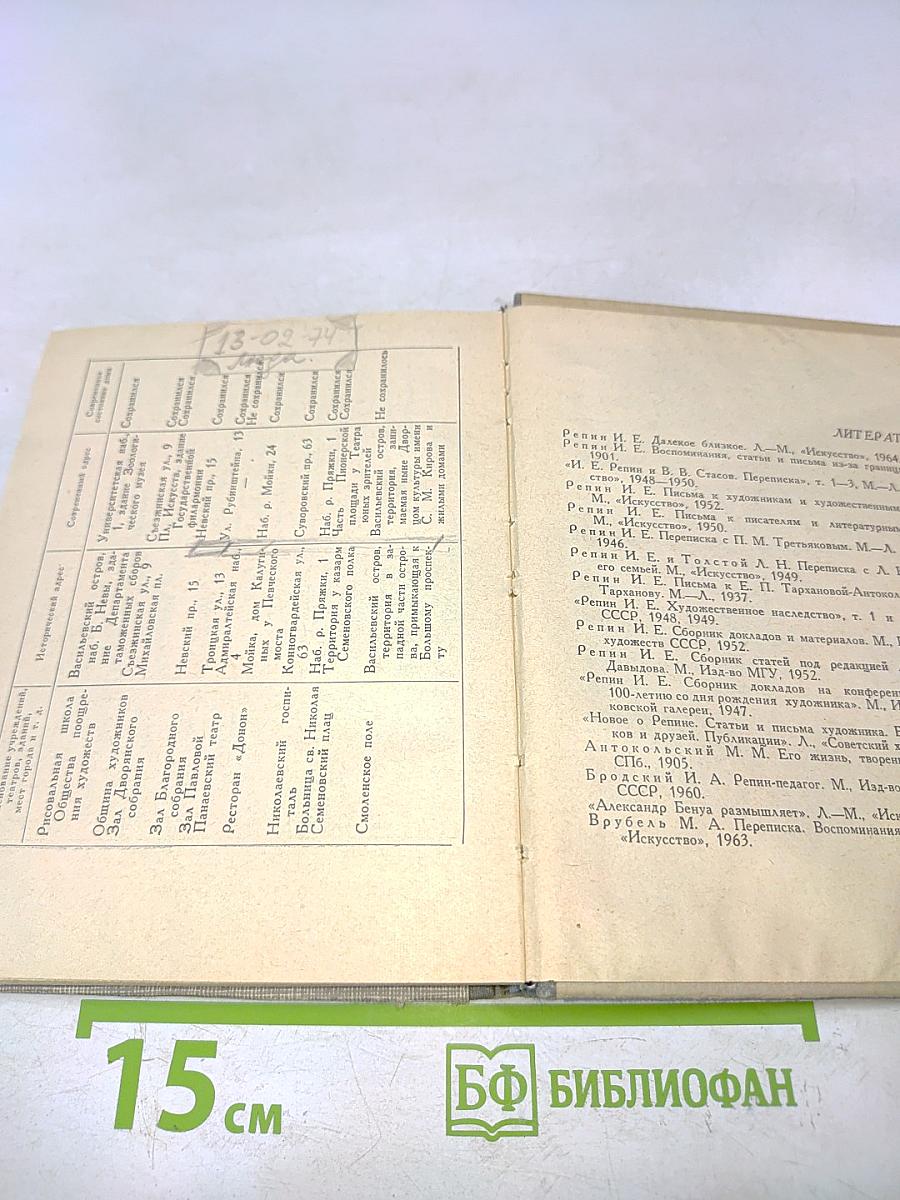 13-02-74
нование учреждений,
театров, зданий,
мест города и т. д.
Исторический адрес
Современный адрес
Современное
состояние дома
Рисовальная школа
Общества поощре-
ния художеств
Васильевский остров,
наб. Б. Невы, зда-
ние Департамента
таможенных сборов
Университетская наб.,
1, здание Зоологи-
ческого музея
Сохранился
Община художников
Съезжинская ул., 9
Съезжинская ул., 9
Сохранился
Зал Дворянского
собрания
Михайловская пл.
Пл. Искусств, здание
Государственной
филармонии
Сохранился
Зал Благородного
собрания
Невский пр., 15
Невский пр., 15
Сохранился
Зал Павловой
Троицкая ул., 13
Ул. Рубинштейна, 13
Сохранился
Панаевский театр
Адмиралтейская наб.,
4
—
Не сохранился
Ресторан «Донон»
Мойка, дом Калуги-
ных у Певческого
моста
Наб. р. Мойки, 24
Сохранился
Николаевский госпи-
таль
Конногвардейская ул.,
63
Суворовский пр., 63
Сохранился
Больница св. Николая
Наб. р. Пряжки, 1
Наб. р. Пряжки, 1
Сохранился
Семеновский плац
Территория у казарм
Семеновского полка
Часть Пионерской
площади у Театра
юных зрителей
Сохранился
Смоленское поле
Васильевский остров,
территория в за-
падной части остро-
ва, примыкающая к
Большому проспек-
ту
Васильевский остров,
территория, зани-
маемая ныне Двор-
цом культуры имени
С. М. Кирова и
жилыми домами
Не сохранилось
ЛИТЕРАТ
Репин И. Е. Далекое близкое. Л.—М., «Искусство», 1964
Репин И. Е. Воспоминания, статьи и письма из-за границ
1901.
«И. Е. Репин и В. В. Стасов. Переписка», т. 1—3, М.—Л
ство», 1948—1950.
Репин И. Е. Письма к художникам и художественным
М., «Искусство», 1952.
Репин И. Е. Письма к писателям и литературным
М., «Искусство», 1950.
Репин И. Е. Переписка с П. М. Третьяковым. М.—Л.
1946.
Репин И. Е. и Толстой Л. Н. Переписка с Л.
его семьей. М., «Искусство», 1949.
Репин И. Е. Письма к Е. П. Тархановой-Антокол
Тарханову. М.—Л., 1937.
«Репин И. Е. Художественное наследство», т. 1 и
СССР, 1948, 1949.
Репин И. Е. Сборник докладов и материалов. М.,
художеств СССР, 1952.
Репин И. Е. Сборник статей под редакцией
Давыдова. М., Изд-во МГУ, 1952.
«Репин И. Е. Сборник докладов на конферен
100-летию со дня рождения художника». М., И
ковской галереи, 1947.
«Новое о Репине. Статьи и письма художника. В
ков и друзей. Публикации». Л., «Советский х
Антокольский М. М. Его жизнь, творен
СПб., 1905.
Бродский И. А. Репин-педагог. М., Изд-во
СССР, 1960.
«Александр Бенуа размышляет». Л.—М., «Иск
Врубель М. А. Переписка. Воспоминания
«Искусство», 1963.
15 см
БФ БИБЛИОФАН